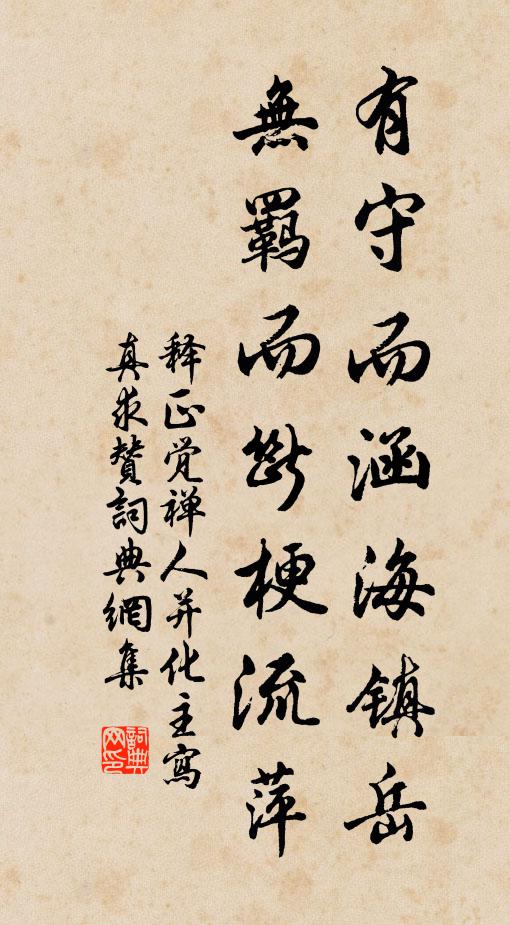 有守而涵海镇岳
無羈而斷梗流萍
释正觉禅人并化主寫
真求赞詞典網集
詞典
网印